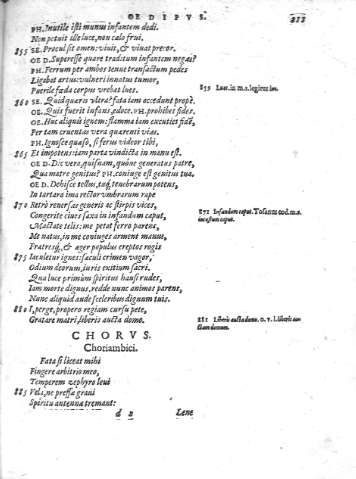 OEDIPVS. 253
PH. Inutile isti munus infantem dedi.
Non potuit ille luce, non cælo frui.
855 SE. Procul sit omen: viuit, & viuat precor.
OED. Superesse quare traditum infantem negas?
PH. Ferrum per ambos tenue transactum pedes
Ligabat artus: vulneri innatus tumor,
Puerile fœda corpus vrebat lues.
860 SE. Quid quæris vltra? fata iam accedunt prope.
OE. Quis fuerit infans, edoce. PH. prohibet fides.
OE. Huc aliquis ignem: flamma iam excutiet fidē,
Per tam cruentas vera quærenti vias.
PH. Ignosce quæso, si ferus videor tibi,
865 Et impotens: iam parta vindicta in manu est.
OED. Dic vera, quisnam, quóne generatus patre,
Qua matre genitus? PH. coniuge est genitus tua.
OED. Dehisce tellus, tuq́; tenebrarum potens,
In tartara ima rector vmbrarum rape
870 Retrò reuersas generis ac stirpis vices,
Congerite ciues saxa in infandum caput,
Mactate telis: me petat ferro parens,
Me natus, in me coniuges arment manus,
Fratresq́;, & æger populus ereptos rogis
875 Iaculetur ignes: sæculi crimen vagor,
Odium deorum, iuris exitium sacri.
Qua luce primùm spiritus hausi rudes,
Iam morte dignus, redde nunc animos parens,
Nunc aliquid aude sceleribus dignum tuis.
880 I, perge, propero regiam cursu pete,
Gratare matri, liberis aucta domo.
CHORVS.
Choriambici.
Fata si liceat mihi
Fingere arbitrio meo,
Temperem zephyro leui
885 Vela, ne pressæ graui
Spiritu antennæ tremant:
d 2 Lene
859 Lues. in m.s. legitur
872 Infandum caput. Toletanus cod. m.s.
incestum caput.
881 Liberis aucta domo. o. v. l. liberis